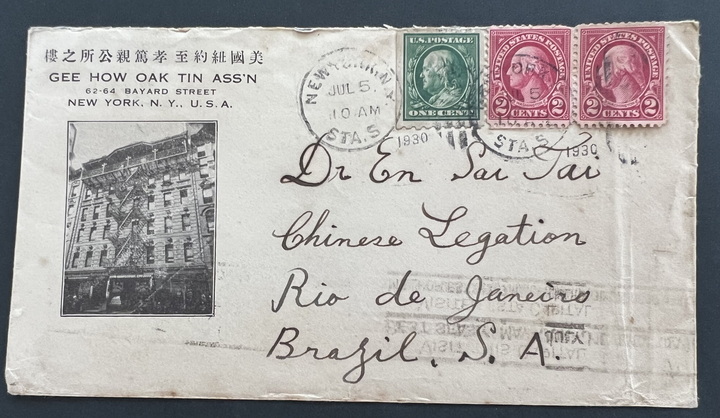 樓之所公親篤孝至約紐國美
GEE HOW OAK TIN ASS'N
62-64 BAYARD STREET
NEW YORK, N. Y., U. S. A.
NEW YORK, N.Y.
JUL 5
10 AM
STA. S
1930
U.S. POSTAGE
ONE CENT
UNITED STATES POSTAGE
2 CENTS 2
5
STA. S
1930
UNITED STATES POSTAGE
2 CENTS 2
Dr En Sai Tai
Chinese Legation
Rio de Janeiro
Brazil, S. A.